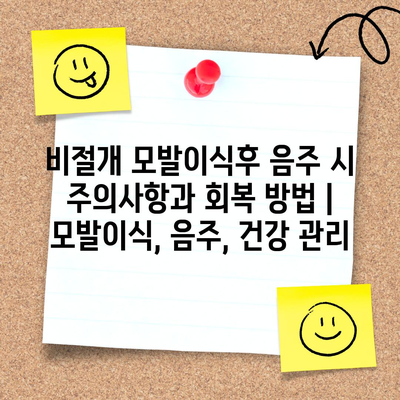 비절개 모발이식후 음주 시
주의사항과 회복 방법 |
모발이식, 음주, 건강 관리